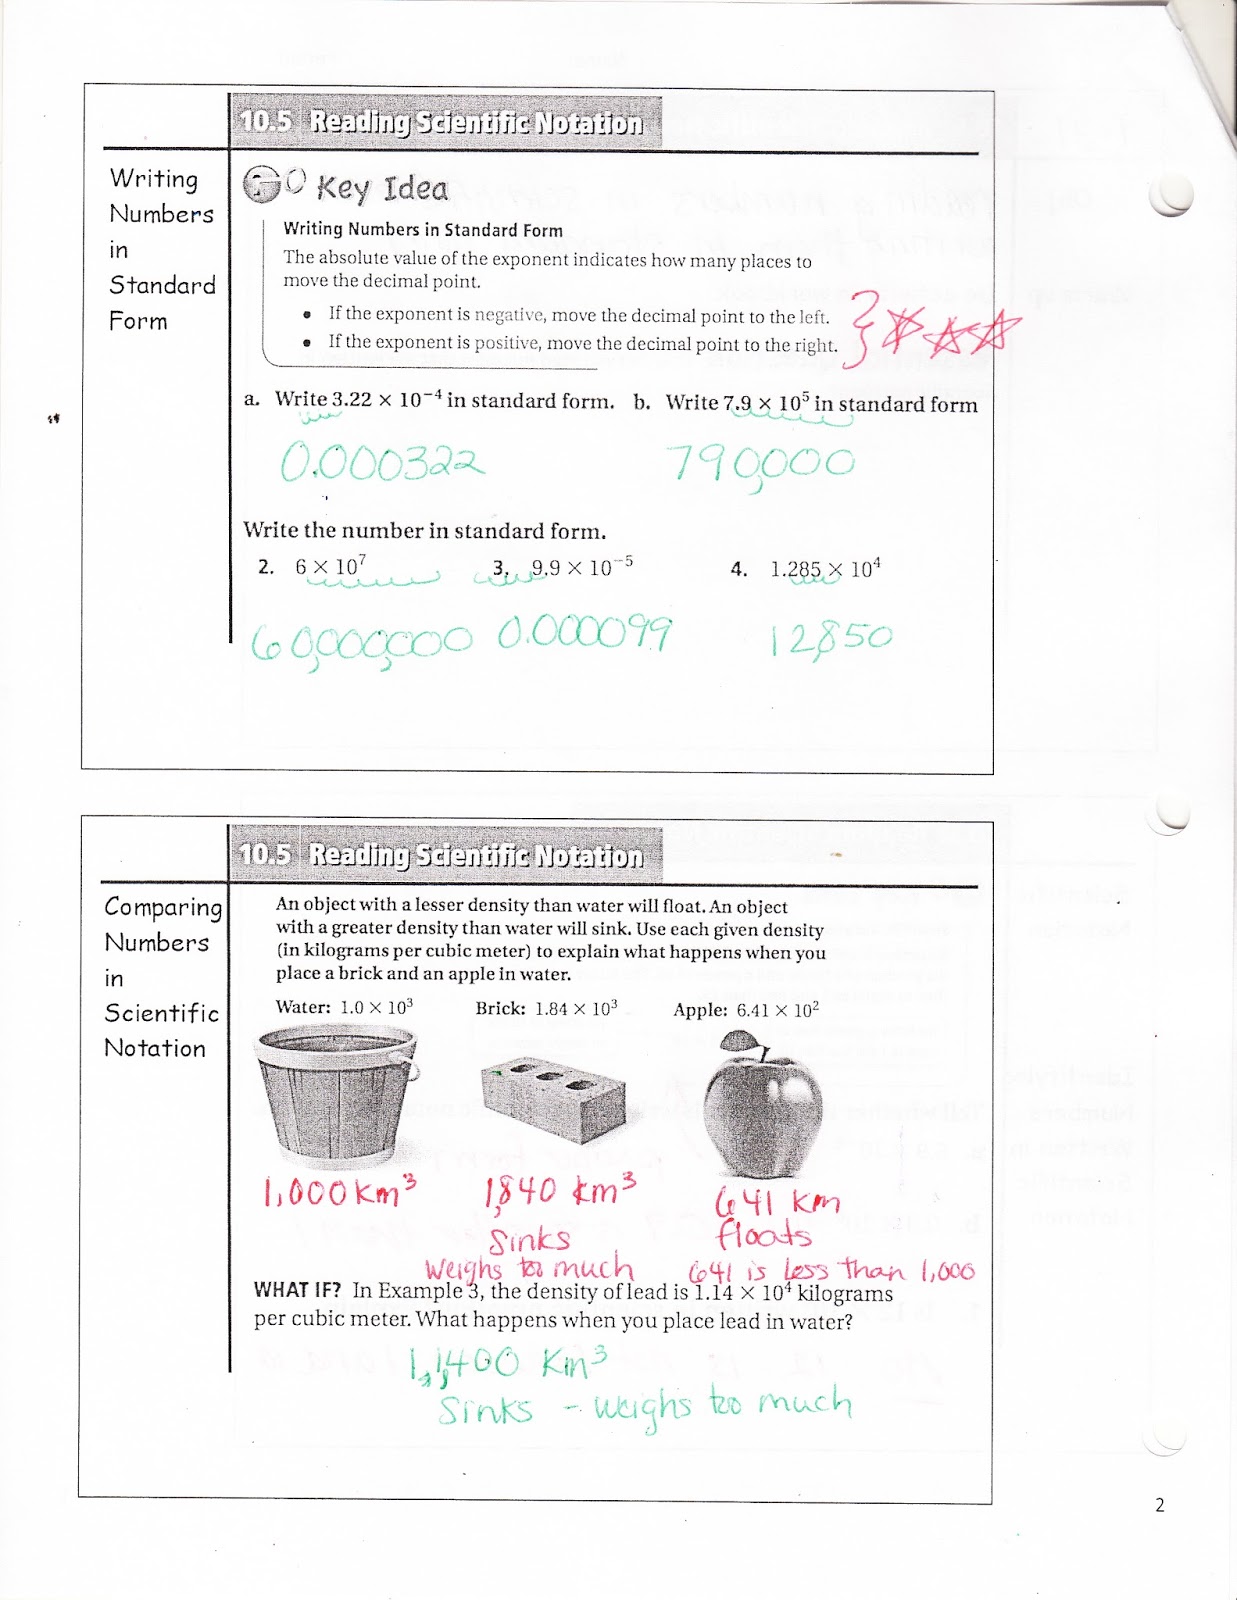 10.5 Reading Scientific Notation
Writing
Numbers
in
Standard
Form
Key Idea
Writing Numbers in Standard Form
The absolute value of the exponent indicates how many places to
move the decimal point.
• If the exponent is negative, move the decimal point to the left.
• If the exponent is positive, move the decimal point to the right.
a. Write 3.22 × 10⁻⁴ in standard form. b. Write 7.9 × 10⁵ in standard form
0.000322 790,000
Write the number in standard form.
2. 6 × 10⁷ 3. 9.9 × 10⁻⁵ 4. 1.285 × 10⁴
60,000,000 0.000099 12,850
10.5 Reading Scientific Notation
Comparing
Numbers
in
Scientific
Notation
An object with a lesser density than water will float. An object
with a greater density than water will sink. Use each given density
(in kilograms per cubic meter) to explain what happens when you
place a brick and an apple in water.
Water: 1.0 × 10³ Brick: 1.84 × 10³ Apple: 6.41 × 10²
1,000 km³ 1,840 km³ 641 km
sinks floats
weighs too much 641 is less than 1,000
WHAT IF? In Example 3, the density of lead is 1.14 × 10⁴ kilograms
per cubic meter. What happens when you place lead in water?
11,400 km³
sinks - weighs too much
2